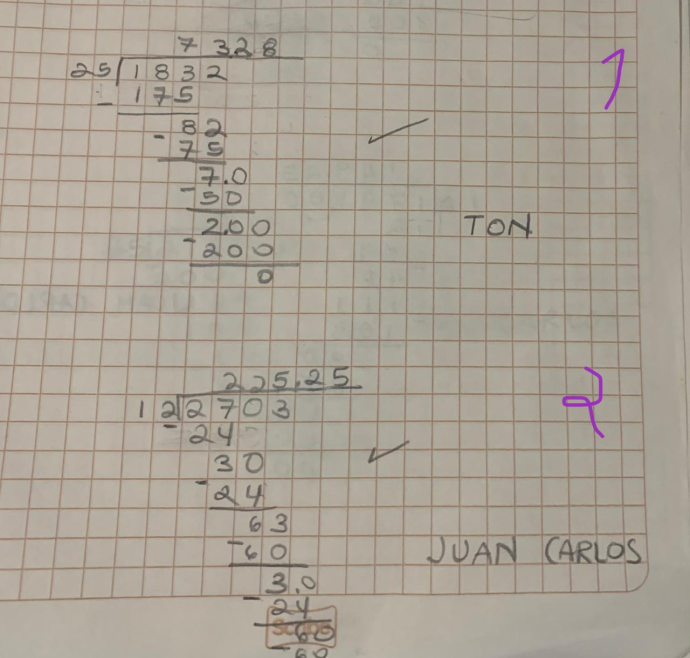 7 328
25 1832
- 175
- 82
75
7.0
- 50
2.00
- 200
0
TON
1
225.25
12 2703
- 24
30
- 24
63
- 60
3.0
- 24
60
- 60
JUAN CARLOS
2